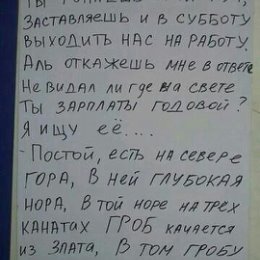 ТЫ
ЗАСТАВЛЯЕШЬ И В СУББОТУ
ВЫХОДИТЬ НАС НА РАБОТУ.
АЛЬ ОТКАЖЕШЬ МНЕ В ОТВЕТЕ
НЕ ВИДАЛ ЛИ ГДЕ НА СВЕТЕ
ТЫ ЗАРПЛАТЫ ГОДОВОЙ?
Я ИЩУ ЕЁ....
- ПОСТОЙ, ЕСТЬ НА СЕВЕРЕ
ГОРА, В НЕЙ ГЛУБОКАЯ
НОРА, В ТОЙ НОРЕ НА ТРЕХ
КАНАТАХ ГРОБ КАЧАЕТСЯ
ИЗ ЗЛАТА, В ТОМ ГРОБУ